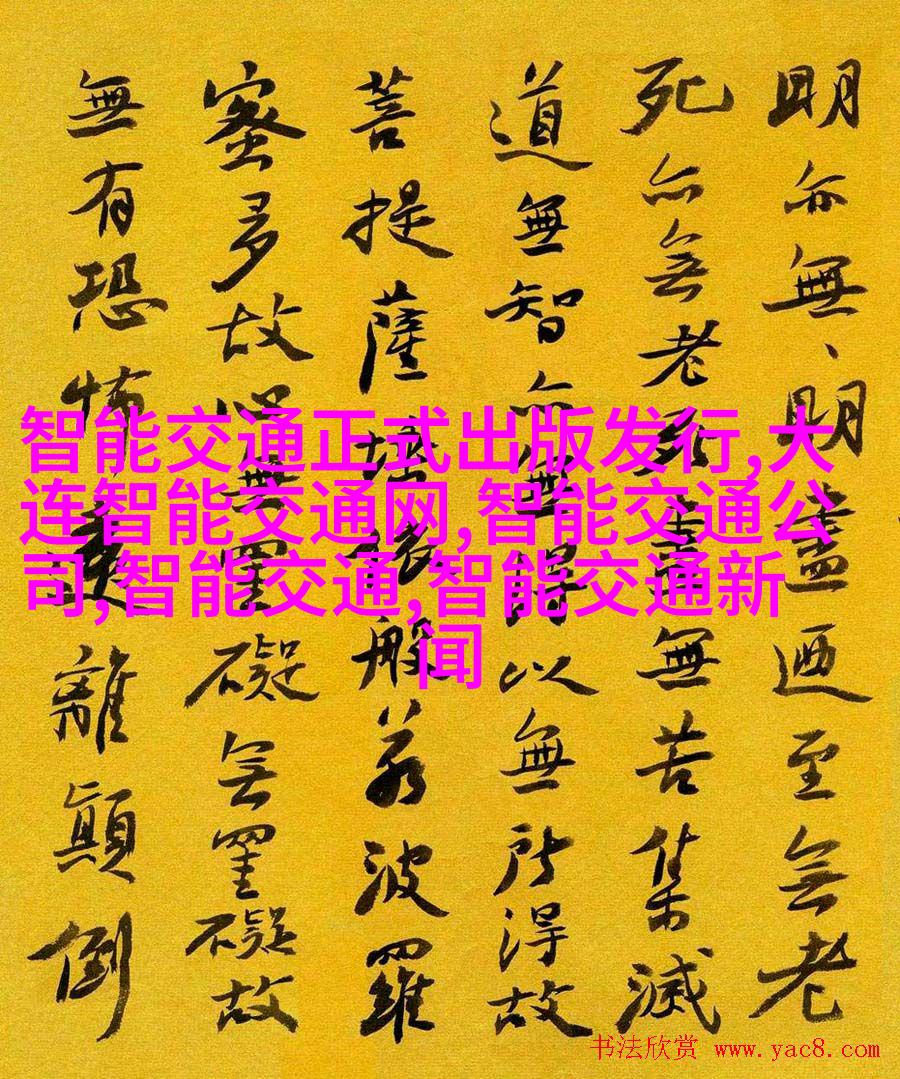 明亦無、明盡迺至無老
死亦無老死盡無苦集滅
道無智亦無得以無所得故
菩提薩埵依般若波羅
蜜多故心無罣礙無罣礙故
無有恐怖遠離顛倒
智能交通正式出版发行,大
连智能交通网,智能交通公
司,智能交通,智能交通新
闻
书法欣赏 www.yac8.com